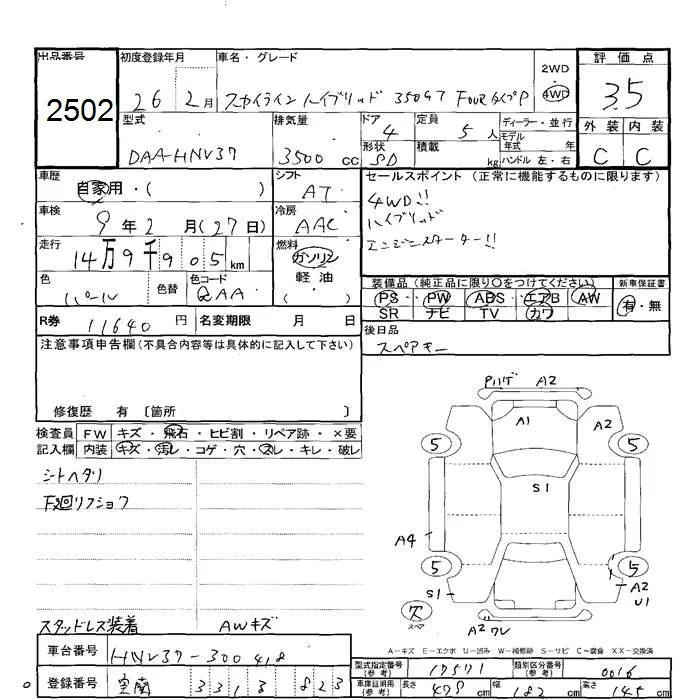 出品番号 初度登録年月 車名・グレード 評価点
2502 26 2月 スカイライン ハイブリッド 350GT FOURタイプP 2WD 4WD 3.5
型式 排気量 ドア 4 定員 5人 ディーラー・並行 外装 内装
DAA-HNV37 3500cc 形状 SD 積載 kg モデル年式 年 ハンドル 左・右 C C
車歴 自家用・( ) シフト AT セールスポイント(正常に機能するものに限ります)
車検 9年2月(27日) 冷房 AAC 4WD!!
ハイブリッド
走行 14万9千905km 燃料 ガソリン 軽油 ( ) エンジンスターター!!
色 パール 色替 色コード QAA 装備品(純正品に限り○をつけてください) 新車保証書
PS PW ABS エアB AW 有・無
R券 11640円 名変期限 月 日 SR ナビ TV カワ
注意事項申告欄(不具合内容等は具体的に記入して下さい) 後日品
スペアキー
修復歴 有〔箇所 〕
検査員 FW キズ・飛石・ヒビ割・リペア跡・×要
記入欄 内装 キズ・汚レ・コゲ・穴・スレ・キレ・破レ
シートヘタリ
下廻リフショク
スタッドレス装着 AWキズ
Pハゲ A2
A1 A2
5 5
S1
A4
5 5
S1 A2
U1
欠
スペア
A2 ワレ
A─キズ E─エクボ U─凹み W─補修跡 S─サビ C─腐食 XX─交換済
車台番号 HNV37-300418
登録番号 室蘭 331 ろ 823
型式指定番号(参考) 17571 類別区分番号(参考) 0016
車庫証明用(参考) 長さ 479cm 幅 182cm 高さ cm